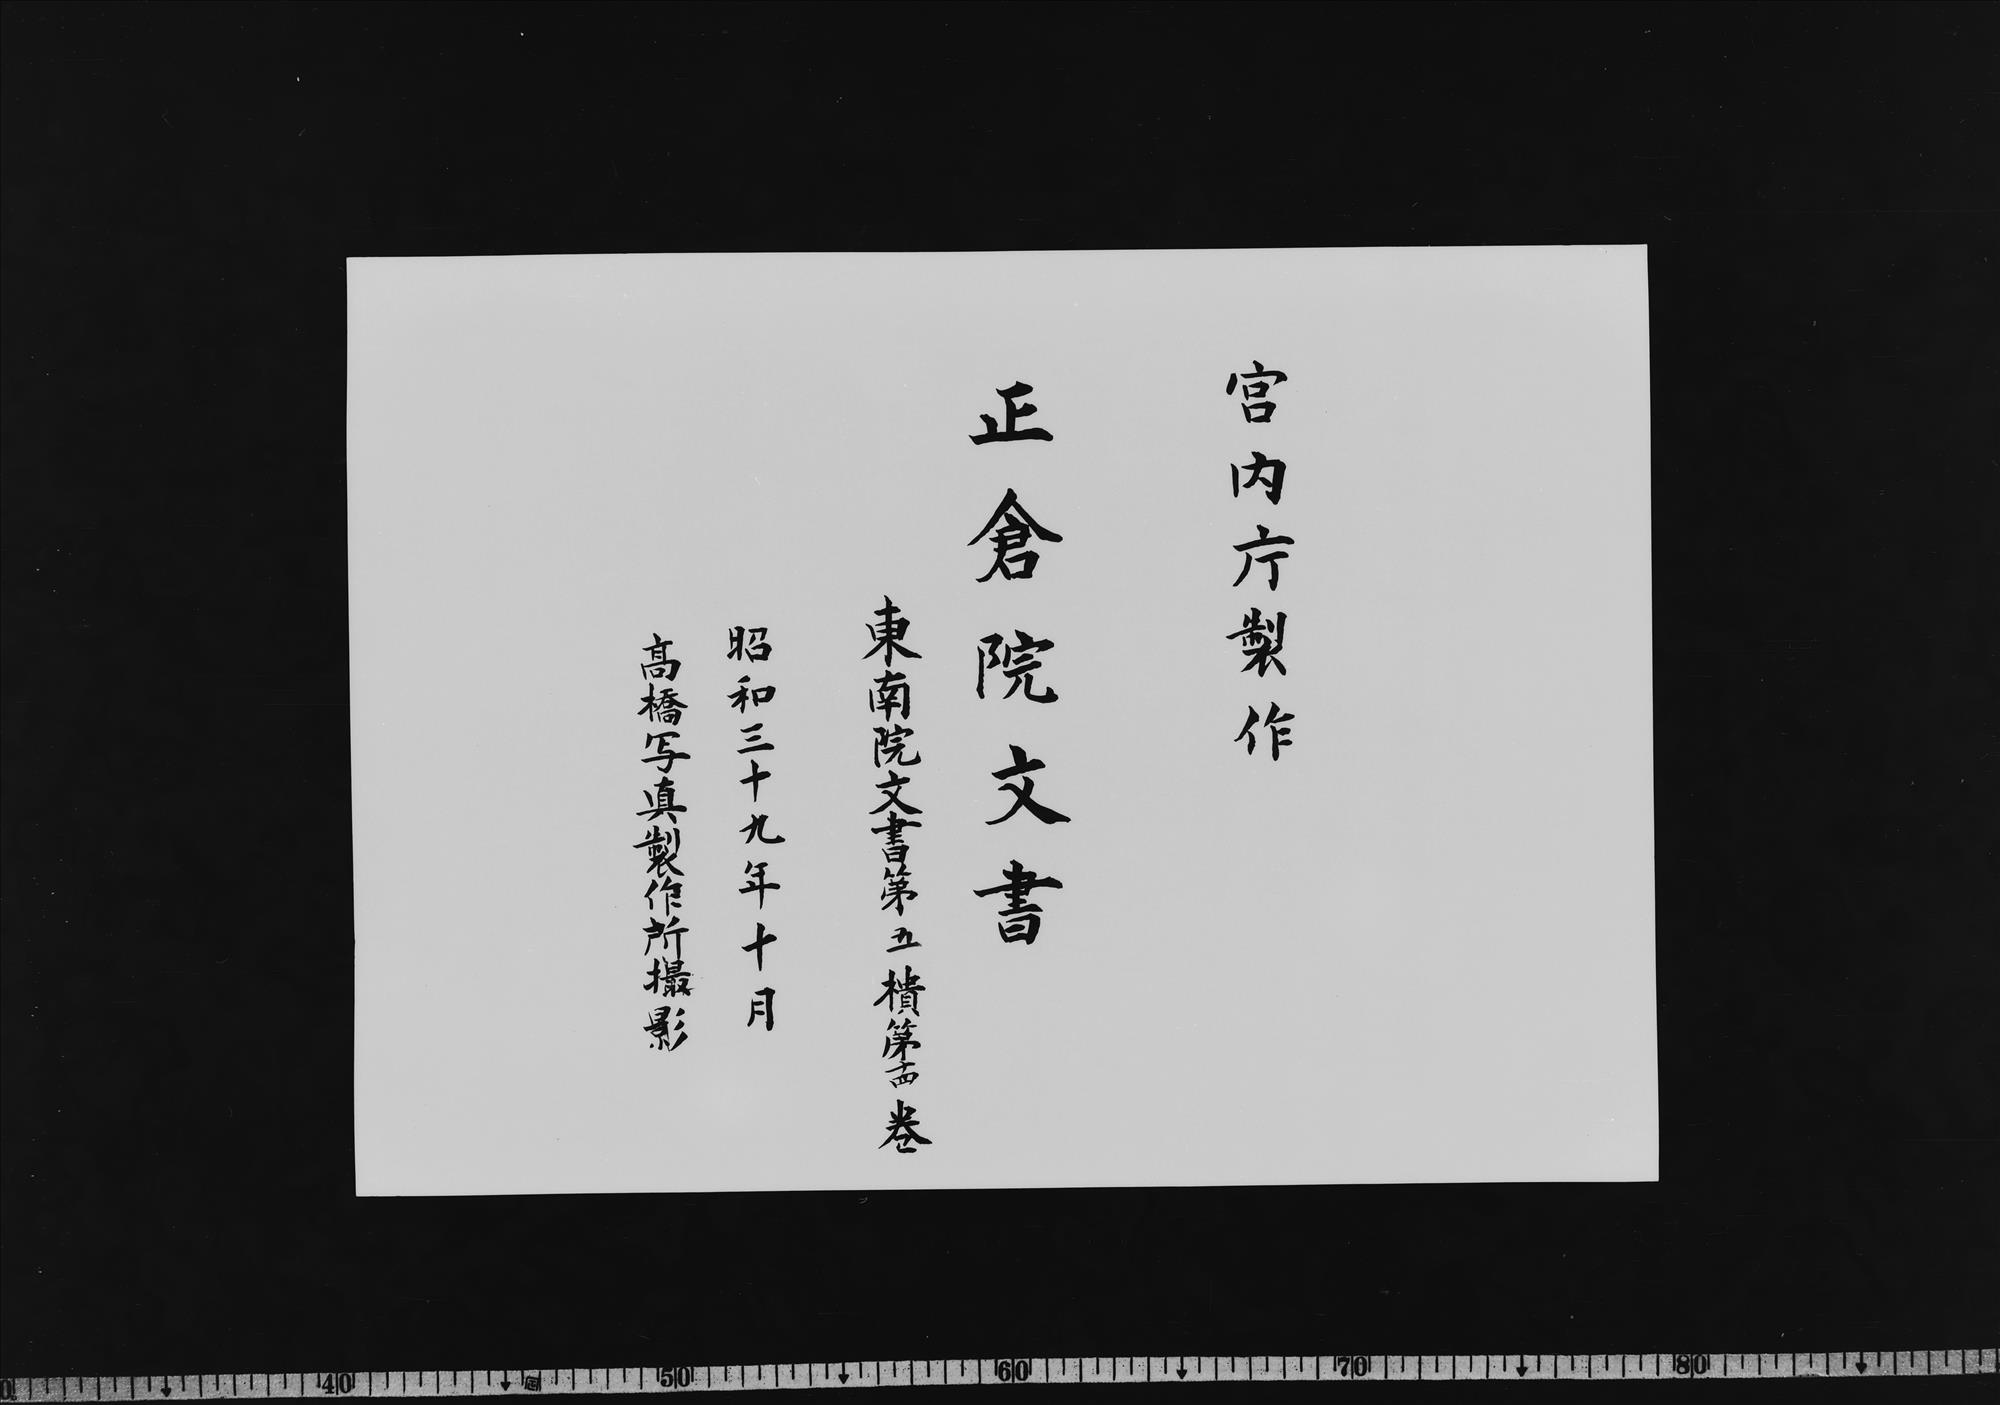 宮内庁製作
正倉院文書
東南院文書第五櫃第十四巻
昭和三十九年十月
高橋写真製作所撮影
40 50 60 70 80